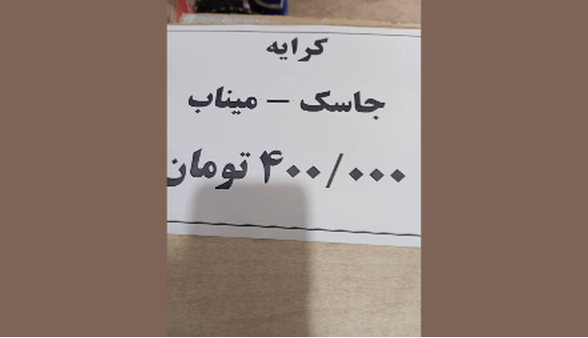 کرایه
جاسک – میناب
۴۰۰/۰۰۰ تومان